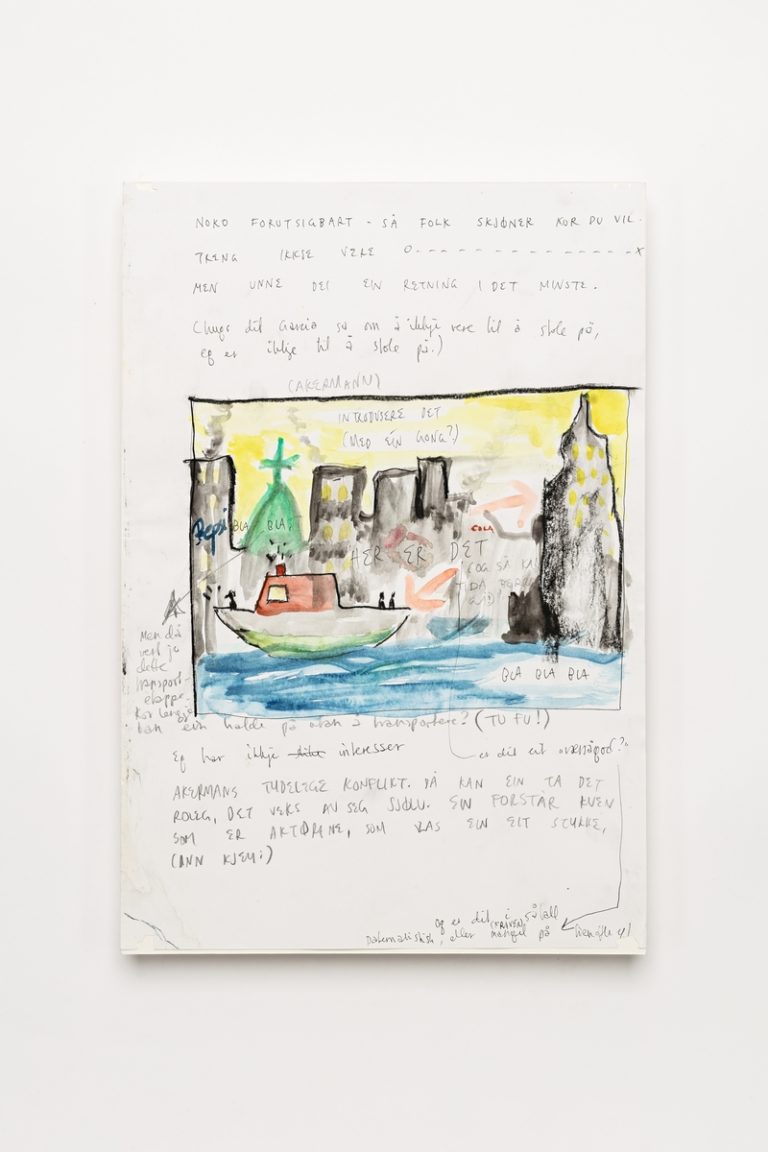 NOKO FORUTSIGBART - SÅ FOLK SKJØNER KOR DU VIL.
TRENG IKKJE VERE O--------------X
MEN UNNE DEI EIN RETNING I DET MINSTE.
til Garcia om å ikkje vere til å stole på,
eg er ikkje til å stole på.)
(AKERMANN)
INTRODUSERE DET
(MED EÍN GONG?)
Pepsi
BLA BLA
COLA
HER ER DET
OG SÅ
DA
BLA BLA BLA
Men då
vert ja
dette
transport-
etappe.
Kor lenge
kan ein halde på utan å transportere? (TU FU!)
Eg har ikkje interesser
er dit eit
AKERMANS TYDELEGE KONFLIKT. DÅ KAN EIN TA DET
ROLEG, DET VEKS AV SEG SJØLV. EIN FORSTÅR KVEN
SOM ER AKTØRANE, SOM EIN EIT STYKKE,
og er dit i såfall
eller mangel på